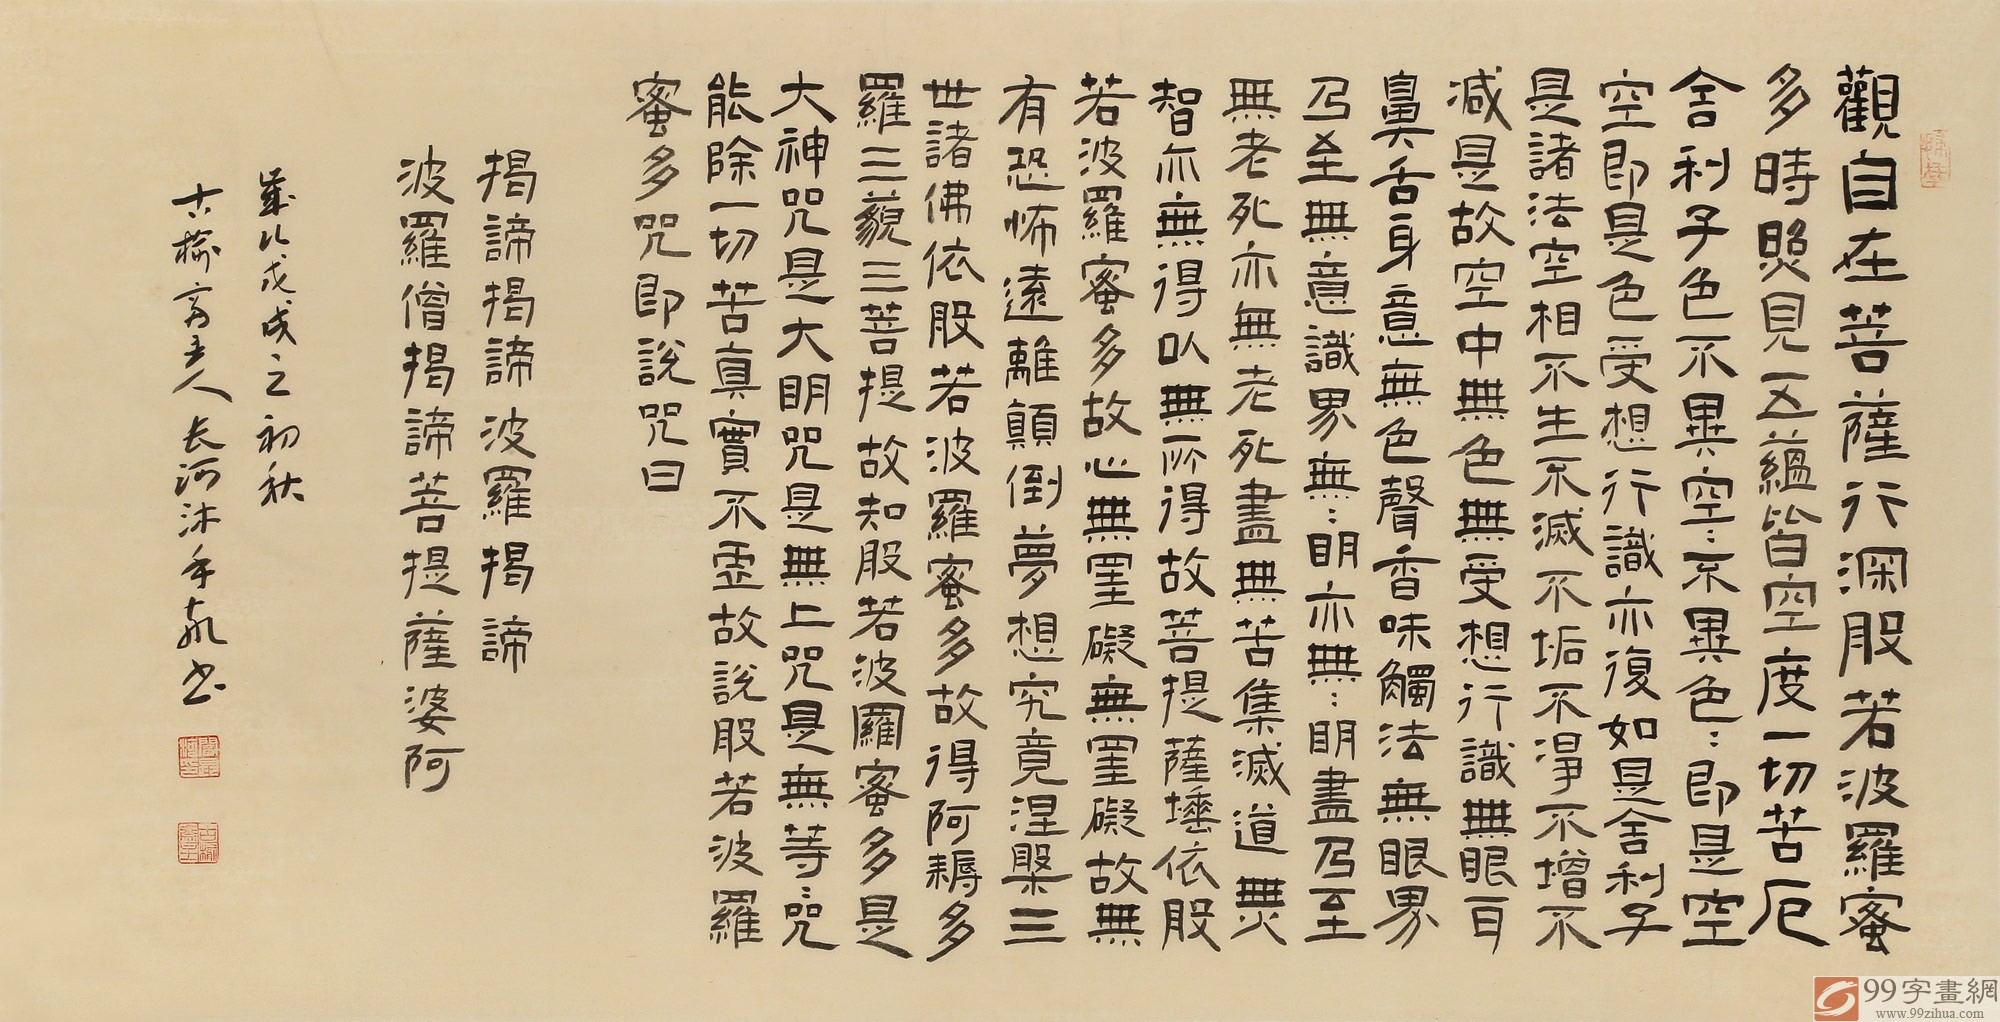 觀自在菩薩行深般若波羅蜜
多時照見五蘊皆空度一切苦厄
舍利子色不異空:不異色:即是空
空即是色受想行識亦復如是舍利子
是諸法空相不生不滅不垢不淨不增不
減是故空中無色無受想行識無眼耳
鼻舌身意無色聲香味觸法無眼界
乃至無意識界無:明亦無:明盡乃至
無老死亦無老死盡無苦集滅道無
智亦無得以無所得故菩提薩埵依般
若波羅蜜多故心無罣礙無罣礙故無
有恐怖遠離顛倒夢想究竟涅槃三
世諸佛依般若波羅蜜多故得阿耨多
羅三藐三菩提故知般若波羅蜜多是
大神咒是大明咒是無上咒是無等:咒
能除一切苦真實不虛故說般若波羅
蜜多咒即說咒曰
揭諦揭諦波羅揭諦
波羅僧揭諦菩提薩婆阿
歲次戊戌之初秋
古榆齋主人长河沐手敬书
99字畫網
www.99zihua.com